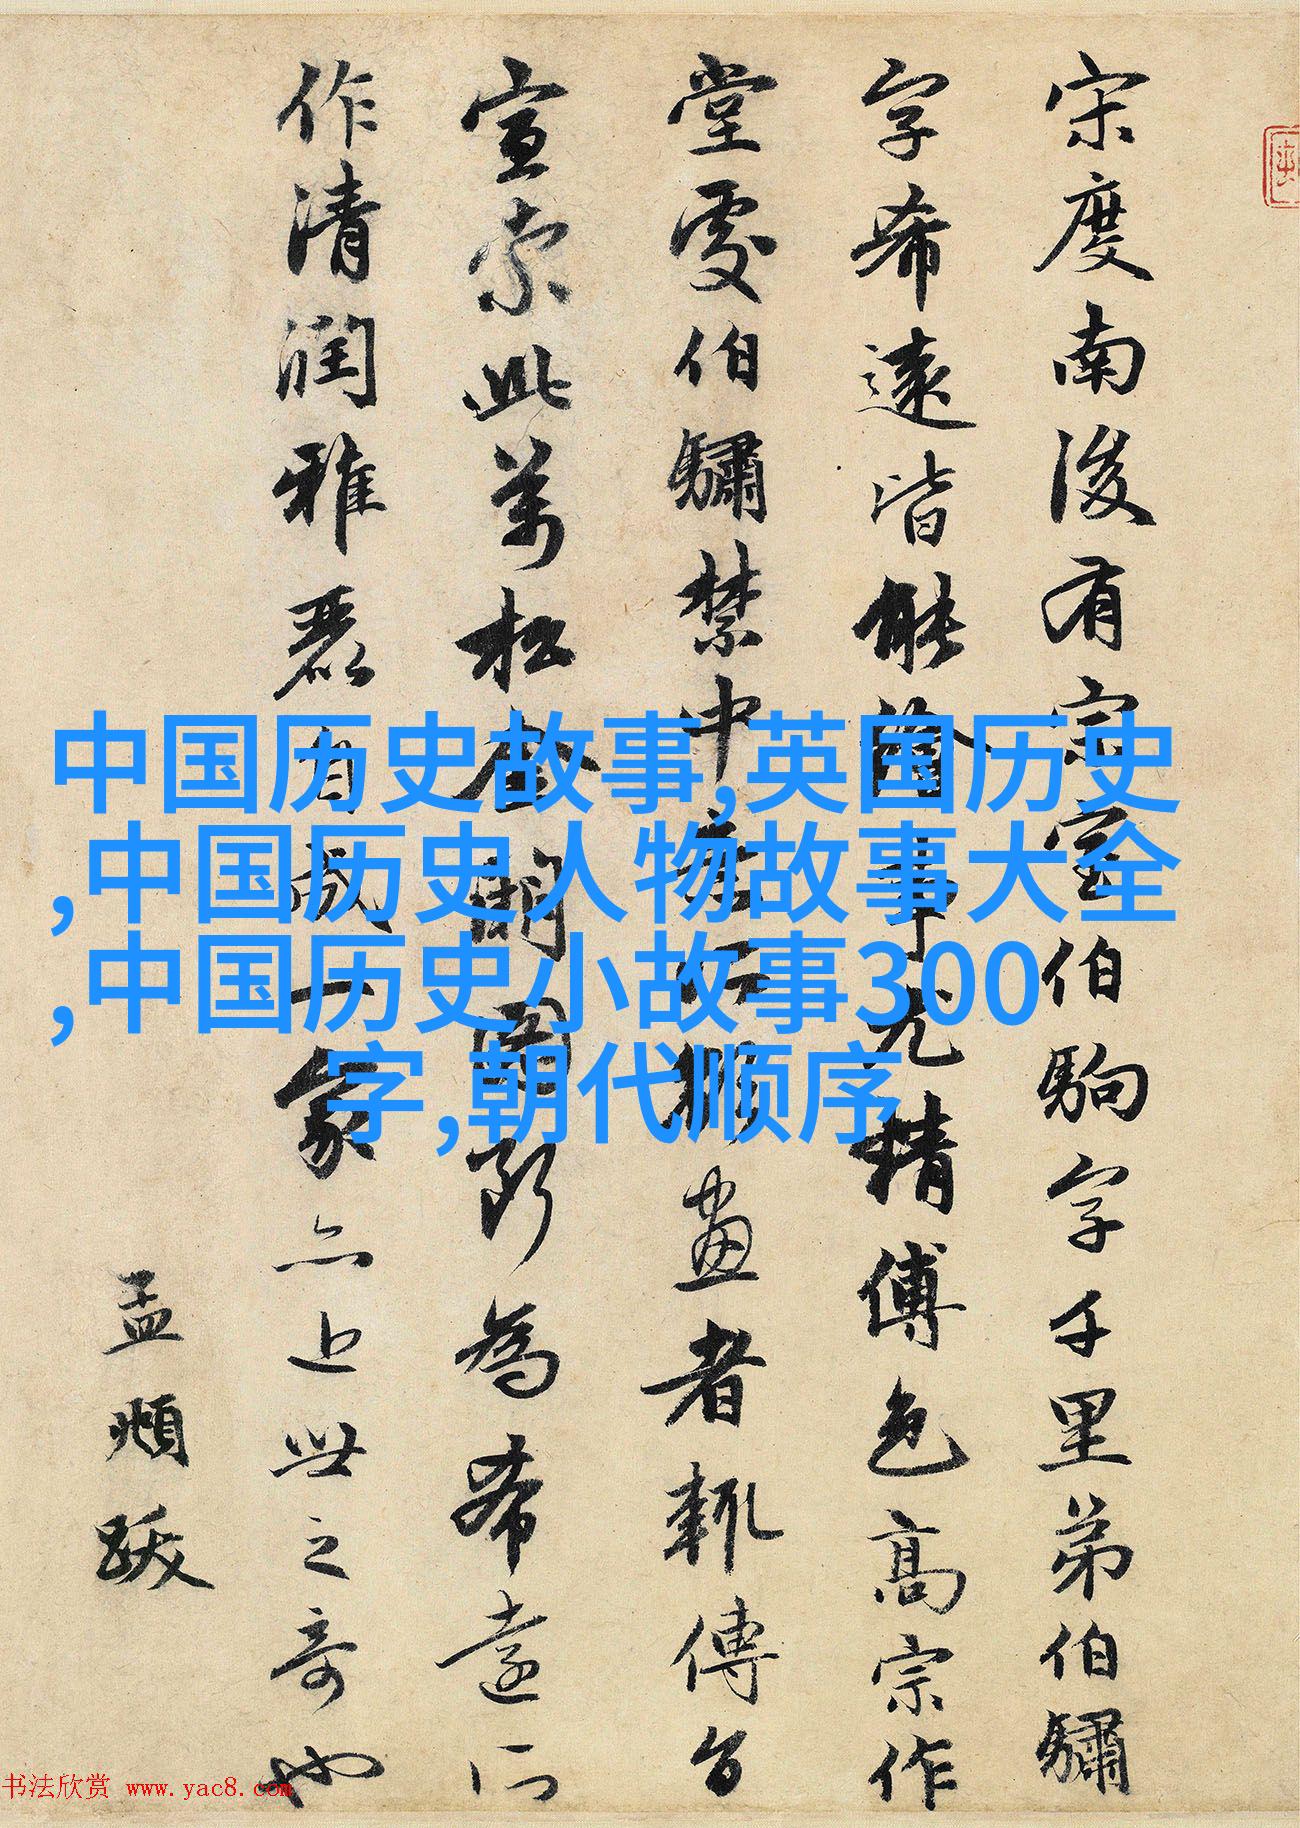 宋度南後有宗室伯駒字千里弟伯驌
字希遠皆能繪事尤精傅色高宗作
堂處伯驌禁中意所欲畫者輒傳旨
宣索此萬松金闕圖所為希遠所
作清潤雅麗自成一家亦近世之奇也
孟頫跋
中国历史故事,英国历史
,中国历史人物故事大全
,中国历史小故事300
字,朝代顺序
书法欣赏 www.yac8.com